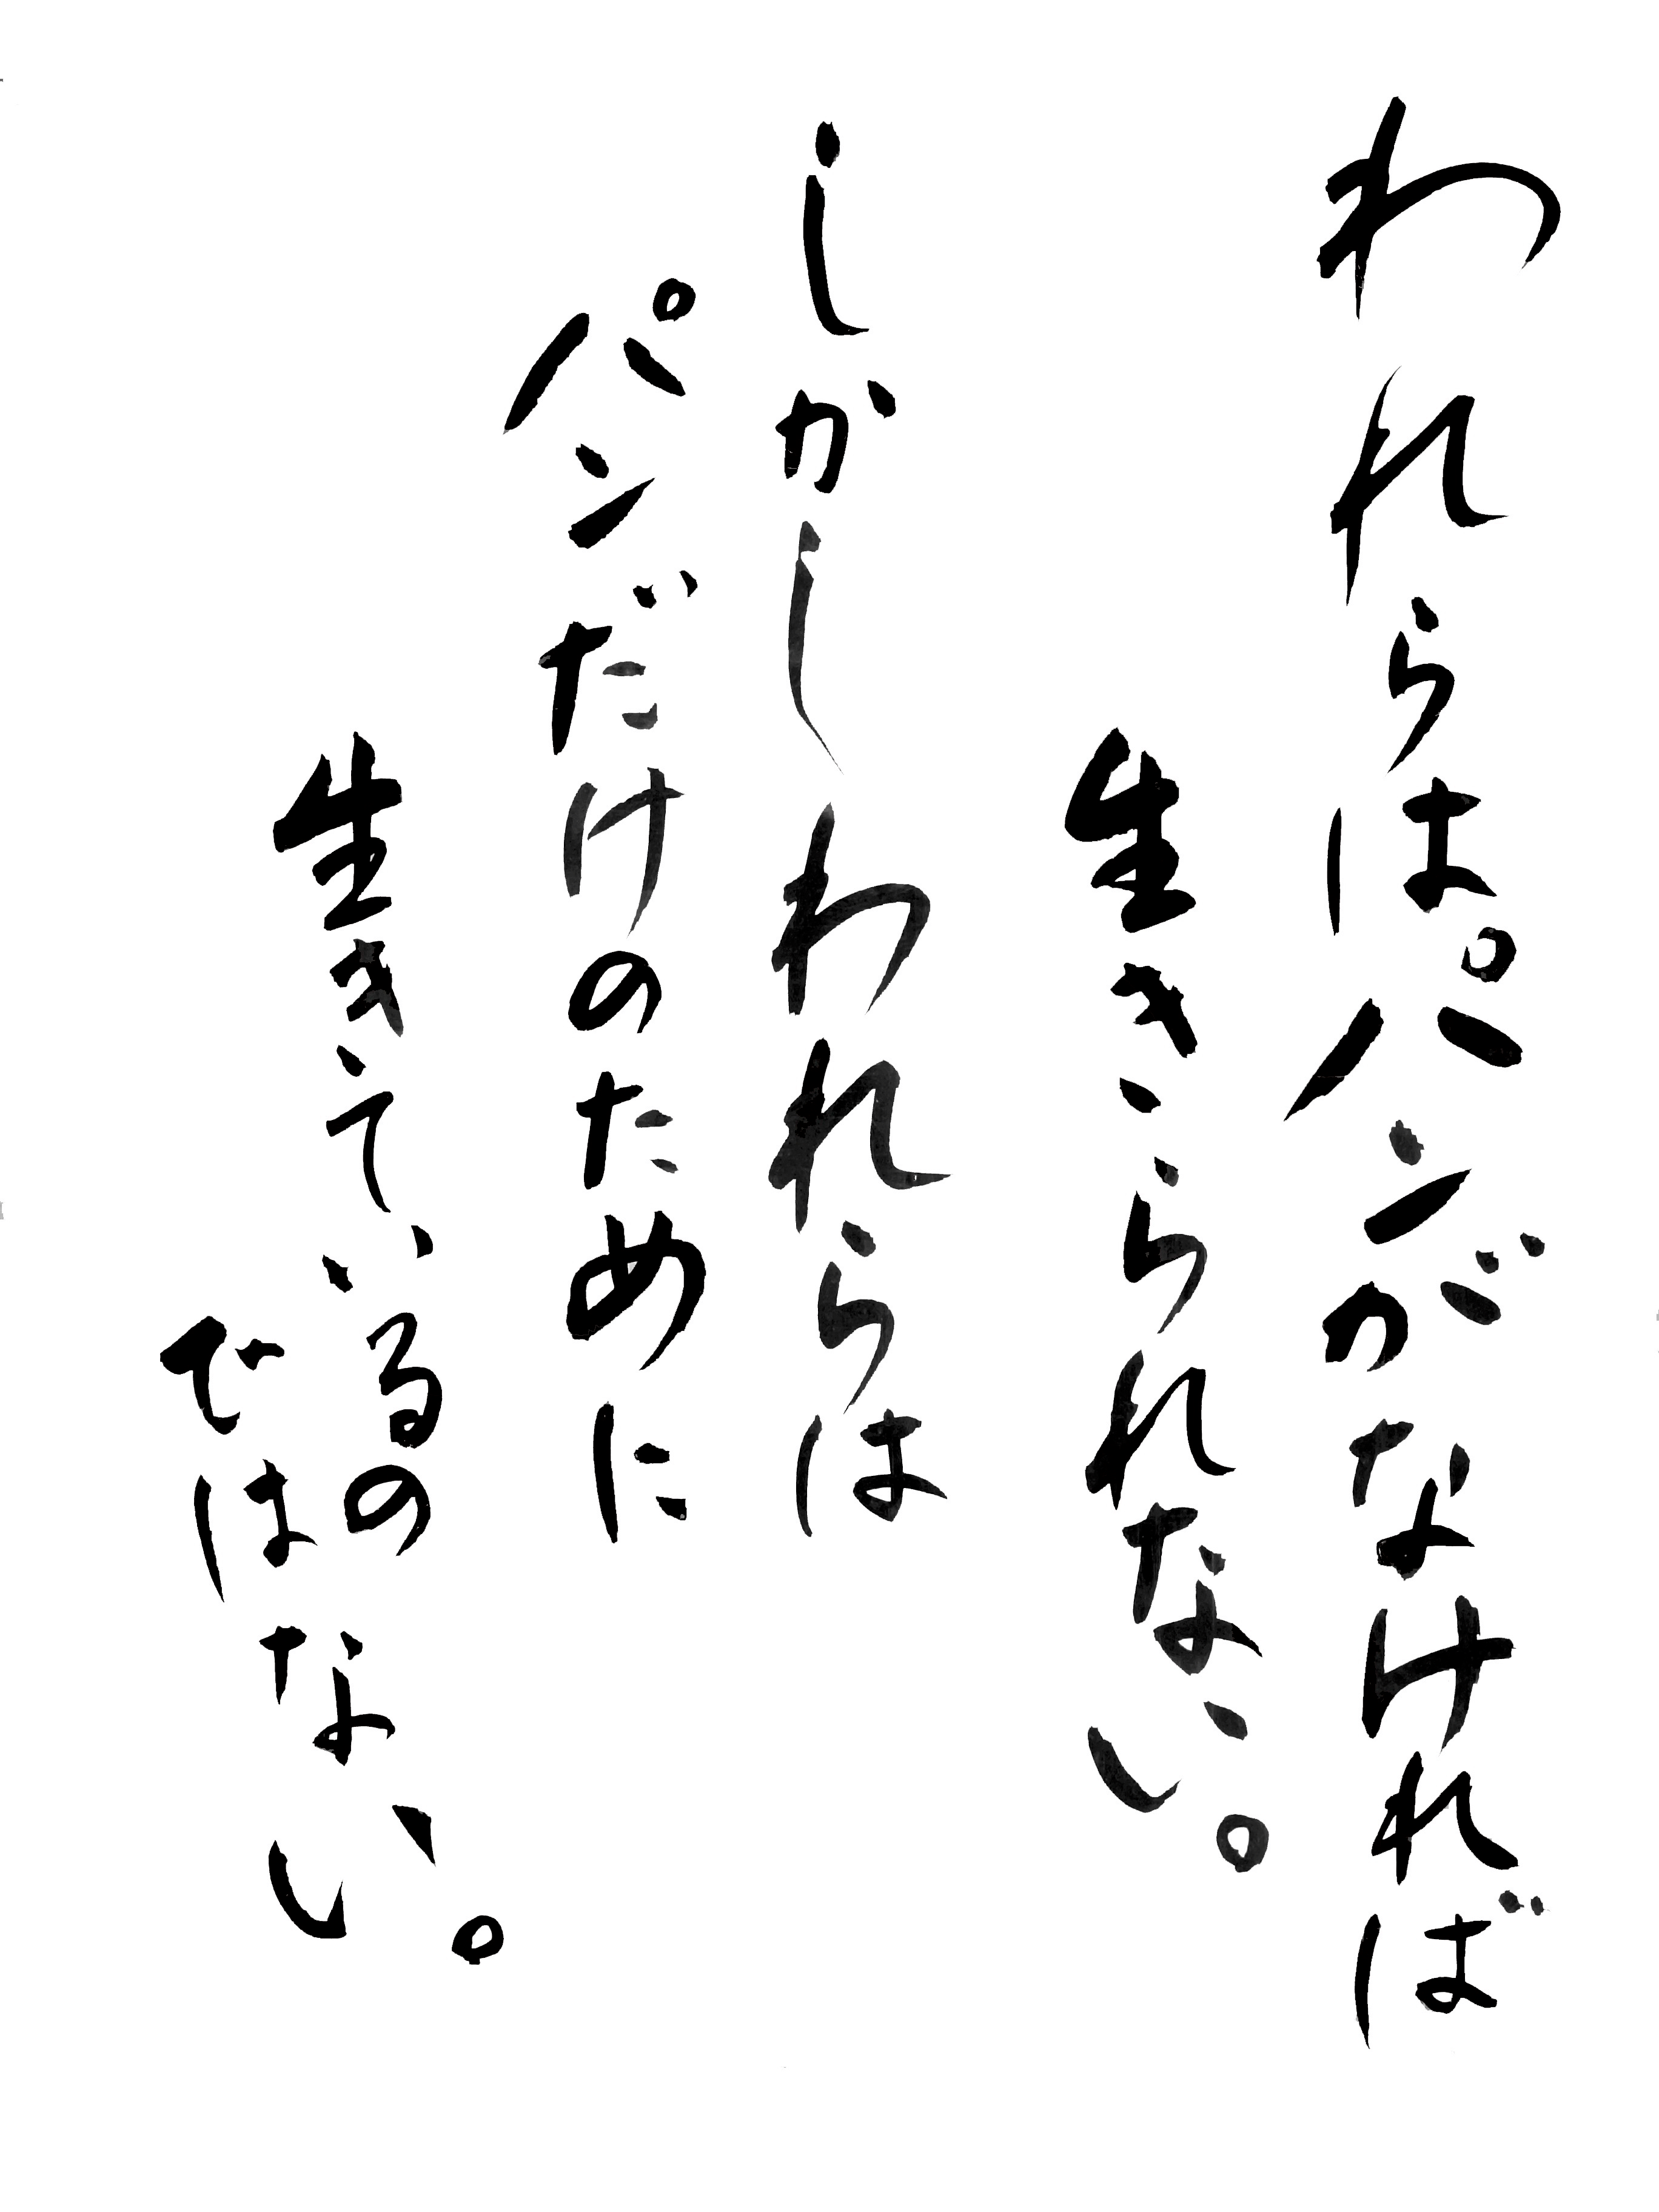 われらはパンがなければ
生きられない。
しかしわれらは
パンだけのために
生きているの
ではない。